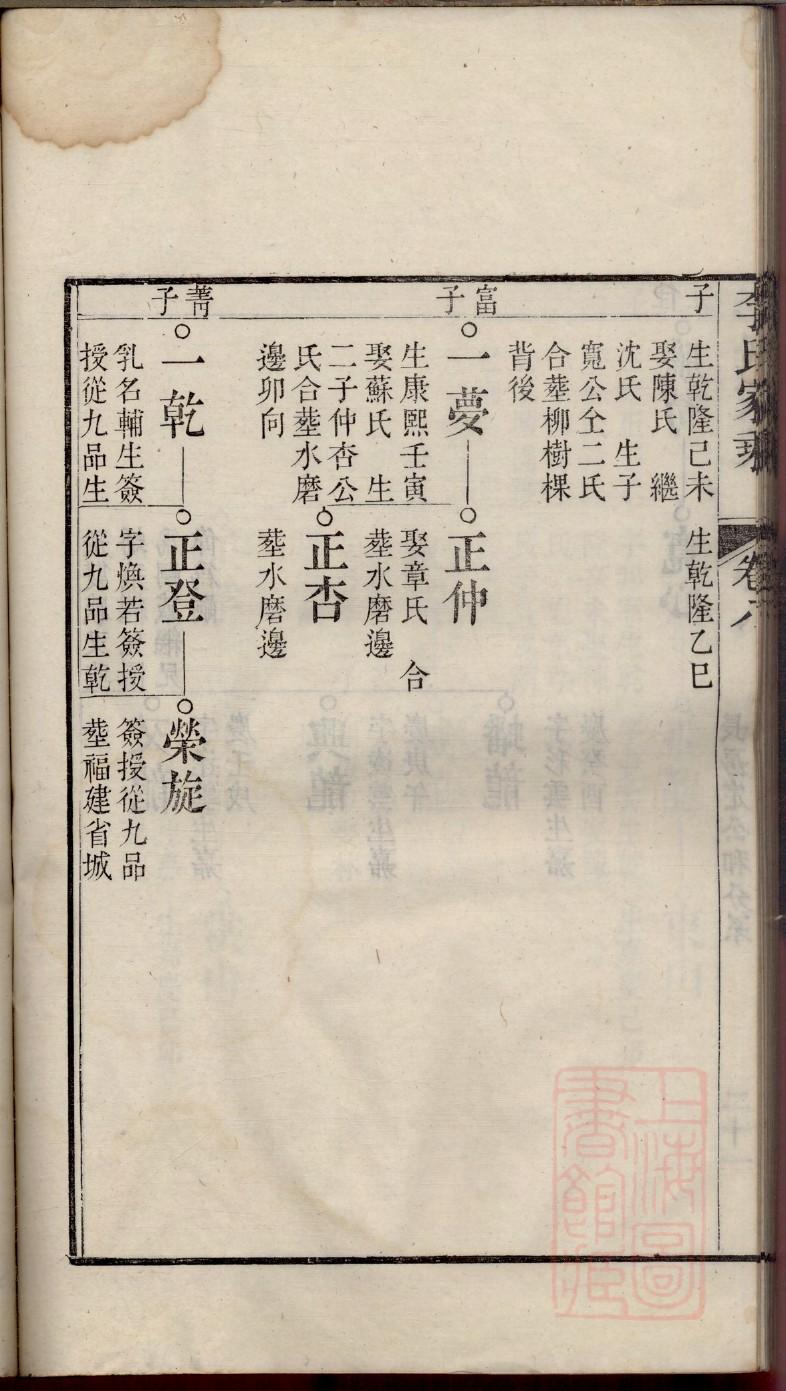 李氏家乘
卷六
子
生乾隆己未
娶陳氏 繼
沈氏 生子
寬公仝二氏
合塟柳樹棵
背後
生乾隆乙巳
富子
一夢
生康熙壬寅
娶蘇氏 生
二子仲杏公
氏合塟水磨
邊卯向
正仲
娶章氏 合
塟水磨邊
正杏
塟水磨邊
菁子
一乾
乳名輔生簽
授從九品生
正登
字煥若簽授
從九品生乾
榮旋
簽授從九品
塟福建省城
上海圖
書館藏